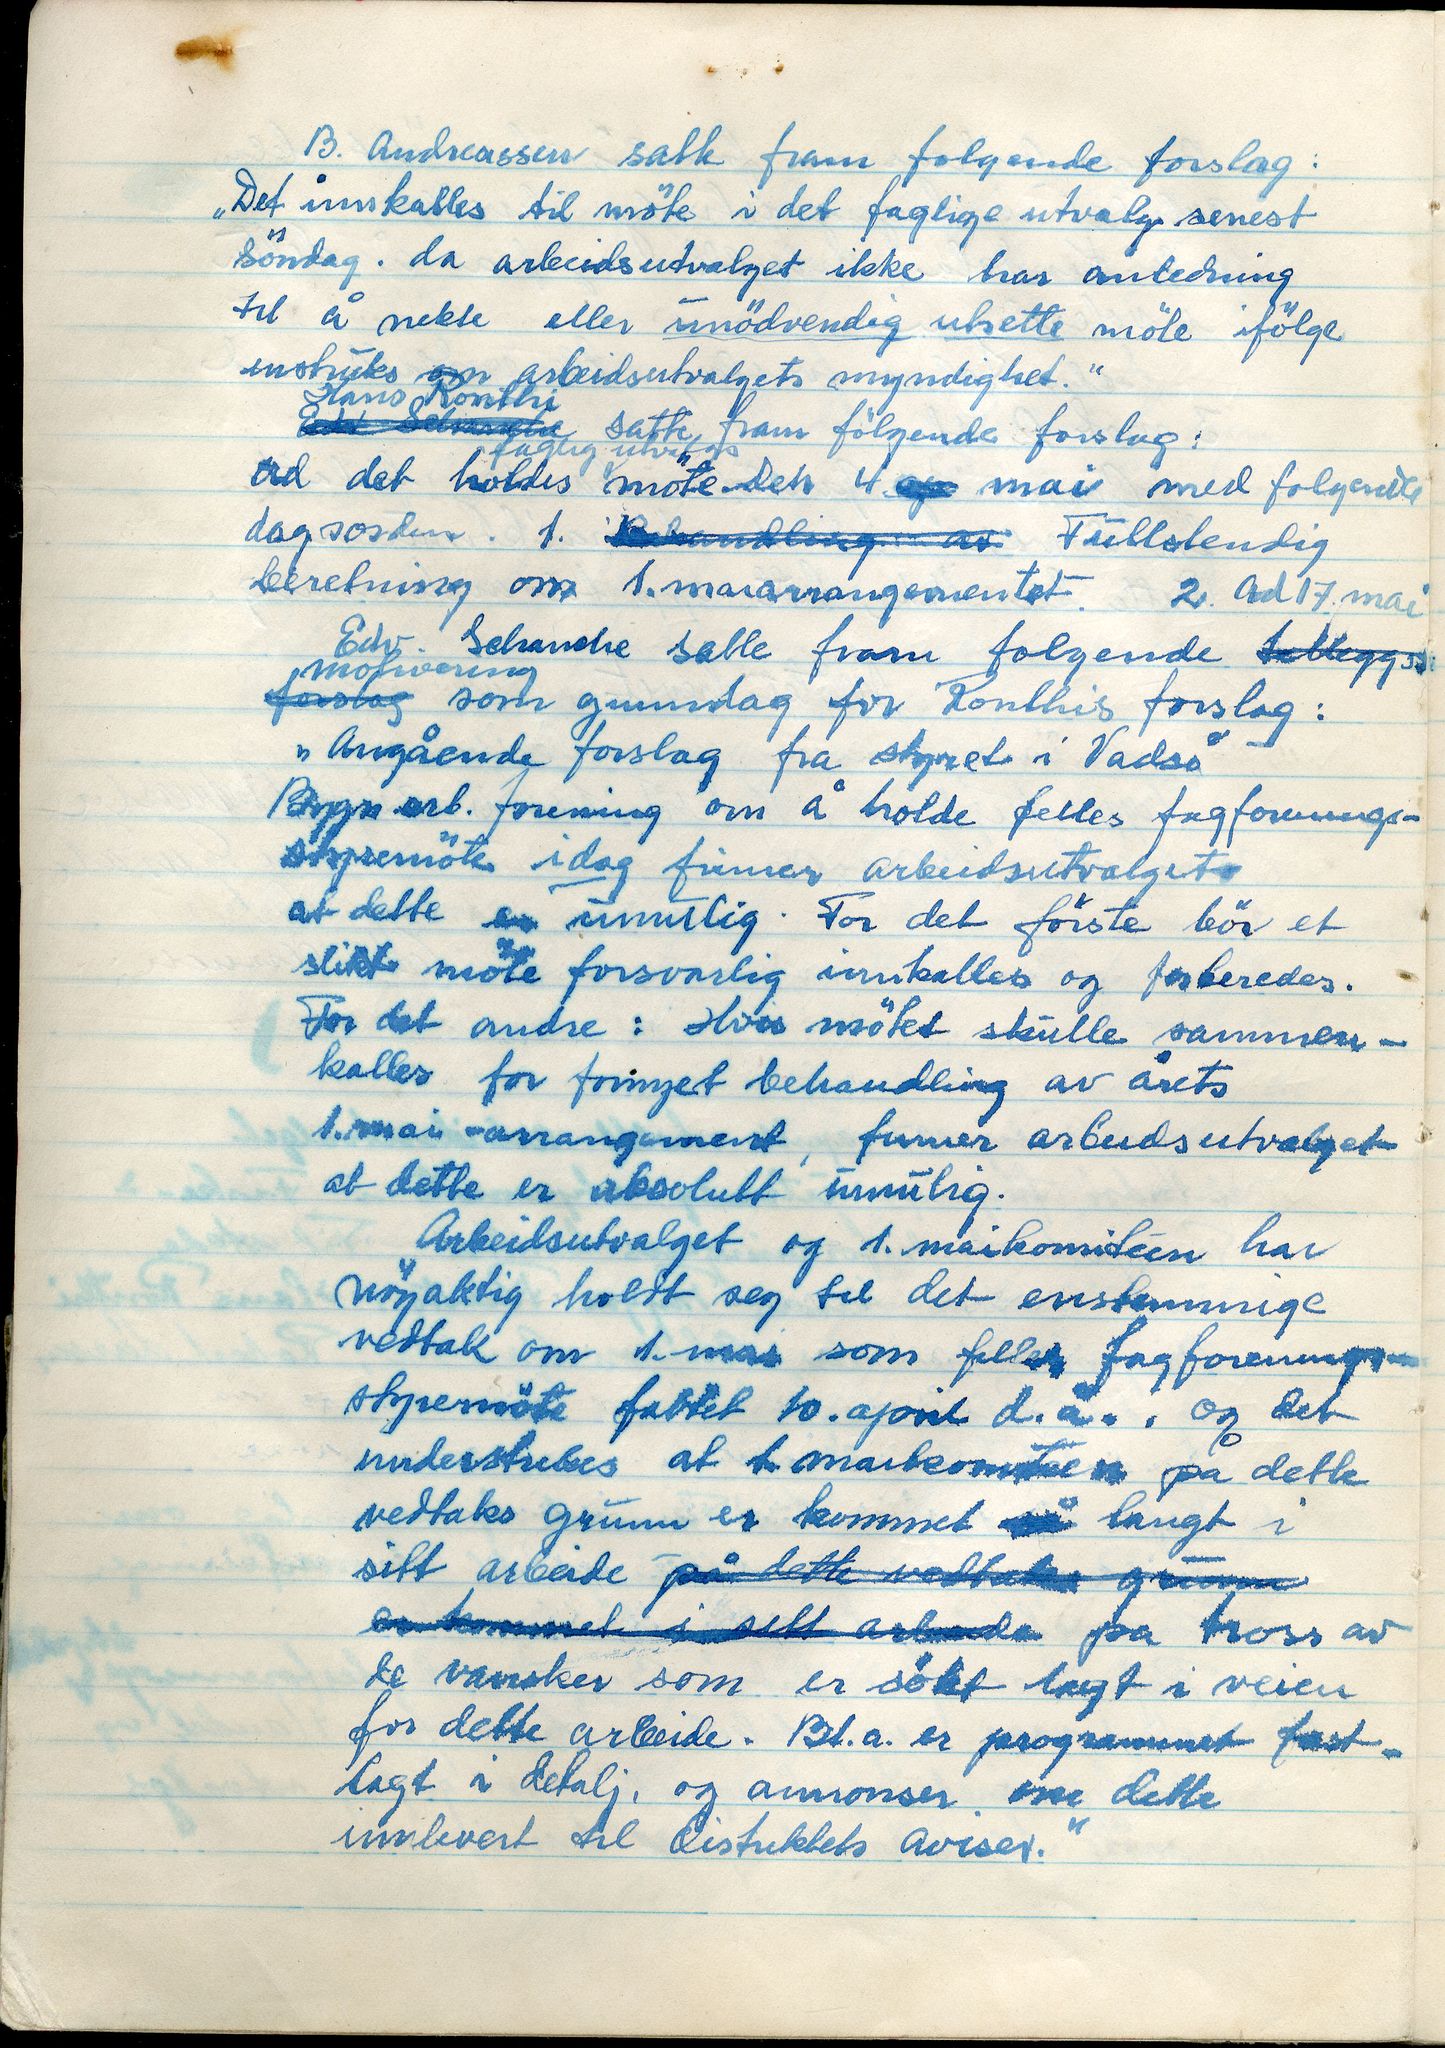 B. Andreassen satte fram følgende forslag:
„Det innkalles til möte i det faglige utvalg senest
söndag. da arbeidsutvalget ikke har anledning
til å nekte eller unödvendig utsette möte ifölge
instruks om arbeidsutvalgets myndighet."
Hans Ronthi
Edv Schanche satte fram fölgende forslag:
faglig utvalgs
ad det holdes möte den 4. ap mai med følgende
dagsorden. 1. Behandling av Fullstendig
beretning om 1.maiarrangementet. 2. Ad 17. mai
Edv. Schanche satte fram følgende tilleggs
motivering
forslag som grunnlag for Ronthis forslag:
„Angående forslag fra styret i Vadsö
Bygn arb. forening om å holde felles fagforenings-
styremöte idag finner arbeidsutvalget
at dette er umulig. For det förste bör et
slikt möte forsvarlig innkalles og forberedes.
For det andre: Hvis mötet skulle sammen-
kalles for fornyet behandling av årets
1.mai-arrangement, finner arbeidsutvalget
at dette er absolutt umulig.
Arbeidsutvalget og 1. maikomiteen har
nöyaktig holdt seg til det enstemmige
vedtak om 1. mai som felles fagforenings-
styremöte fattet 10. april d.å.. og det
understrekes at 1 maikomiteen på dette
vedtaks grunn er kommet så langt i
sitt arbeide på dette vedtaks grunn
er kommet i sitt arbeide på tross av
de vansker som er sökt lagt i veien
for dette arbeide. Bl.a. er programmet fast-
lagt i detalj, og annonser om dette
innlevert til distriktets aviser."